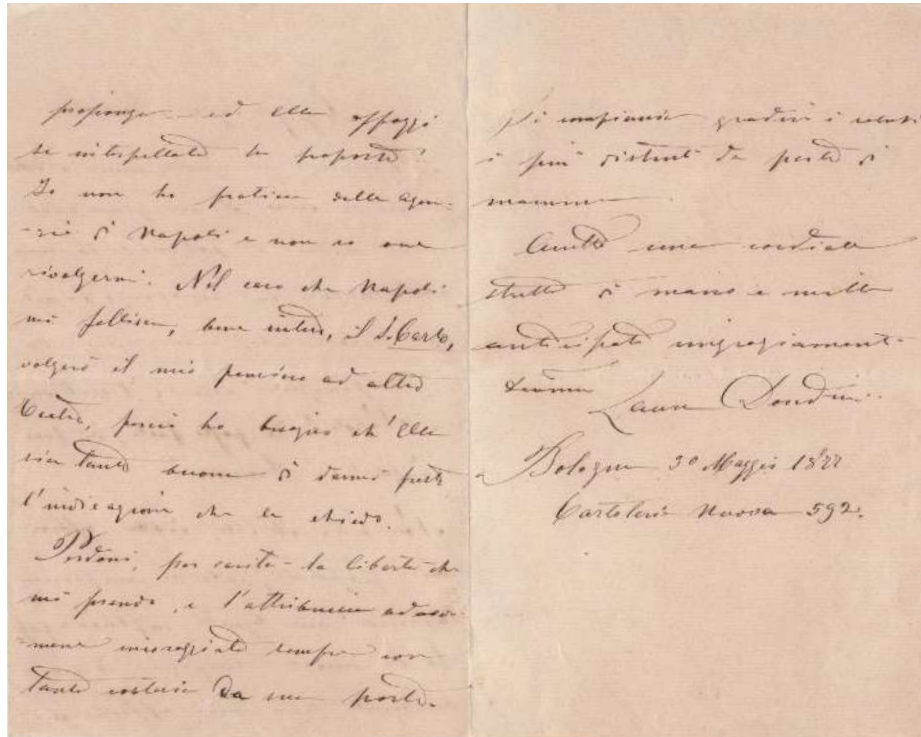 proponga - ed Ella appoggi
se interpellato la proposta?
Io non ho pratica delle agen-
-zie di Napoli e non so ove
rivolgermi. Nel caso che Napoli
mi fallisca, bene inteso, il S. Carlo,
volgerò il mio pensiero ad altro
teatro, perciò ho bisogno ch'Ella
sia tanto buono di darmi presto
l'indicazione che le chiedo.
Perdoni, per carità - la libertà che
mi prendo, e l'attribuisca ad
incoraggiato sempre con
tanta cortesia da sua parte.
Si compiaccia gradire i saluti
i più distinti da parte di
mamma
Accetti una cordiale
stretta di mano e mille
anticipati ringraziamenti
Laura Dondini.
Bologna 30 Maggio 1877
Cartoleria Nuova 592.